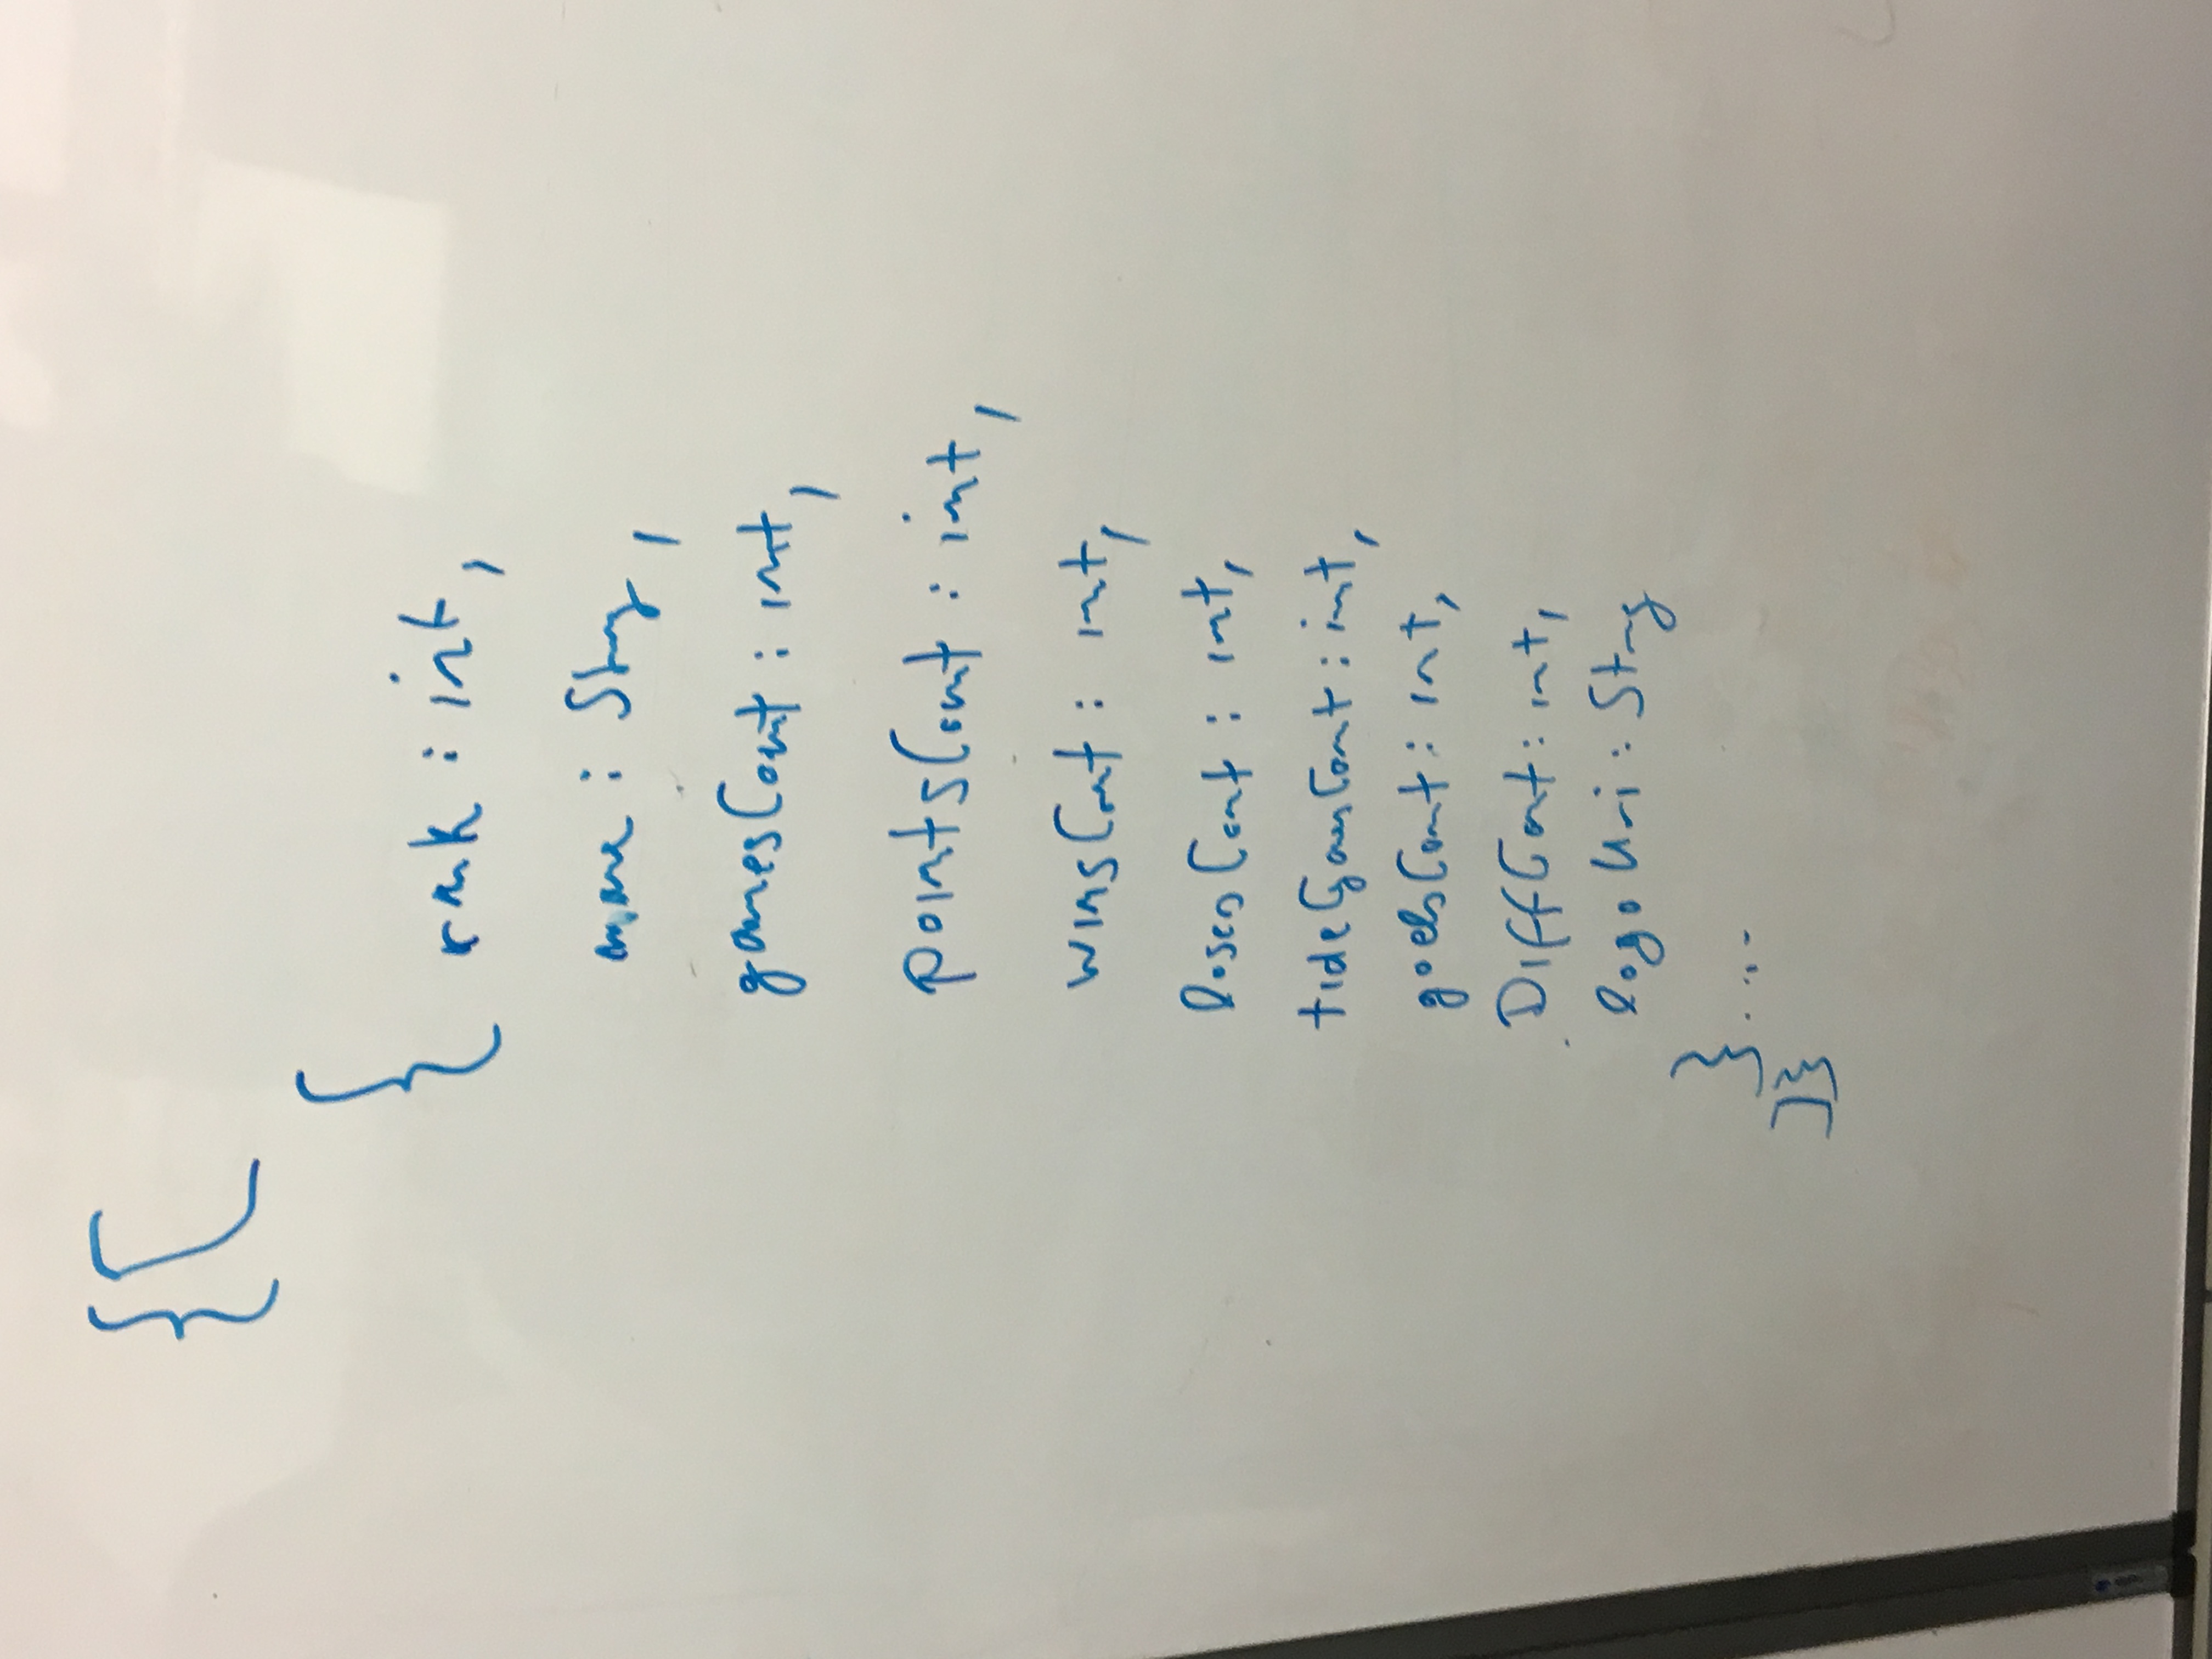 {[
{ rank : int,
name : String,
gamesCount : int,
pointsCount : int,
winsCount : int,
losesCount : int,
tideGamesCount : int,
goalsCount : int,
DiffCount : int,
logoUri : String
}....
]}